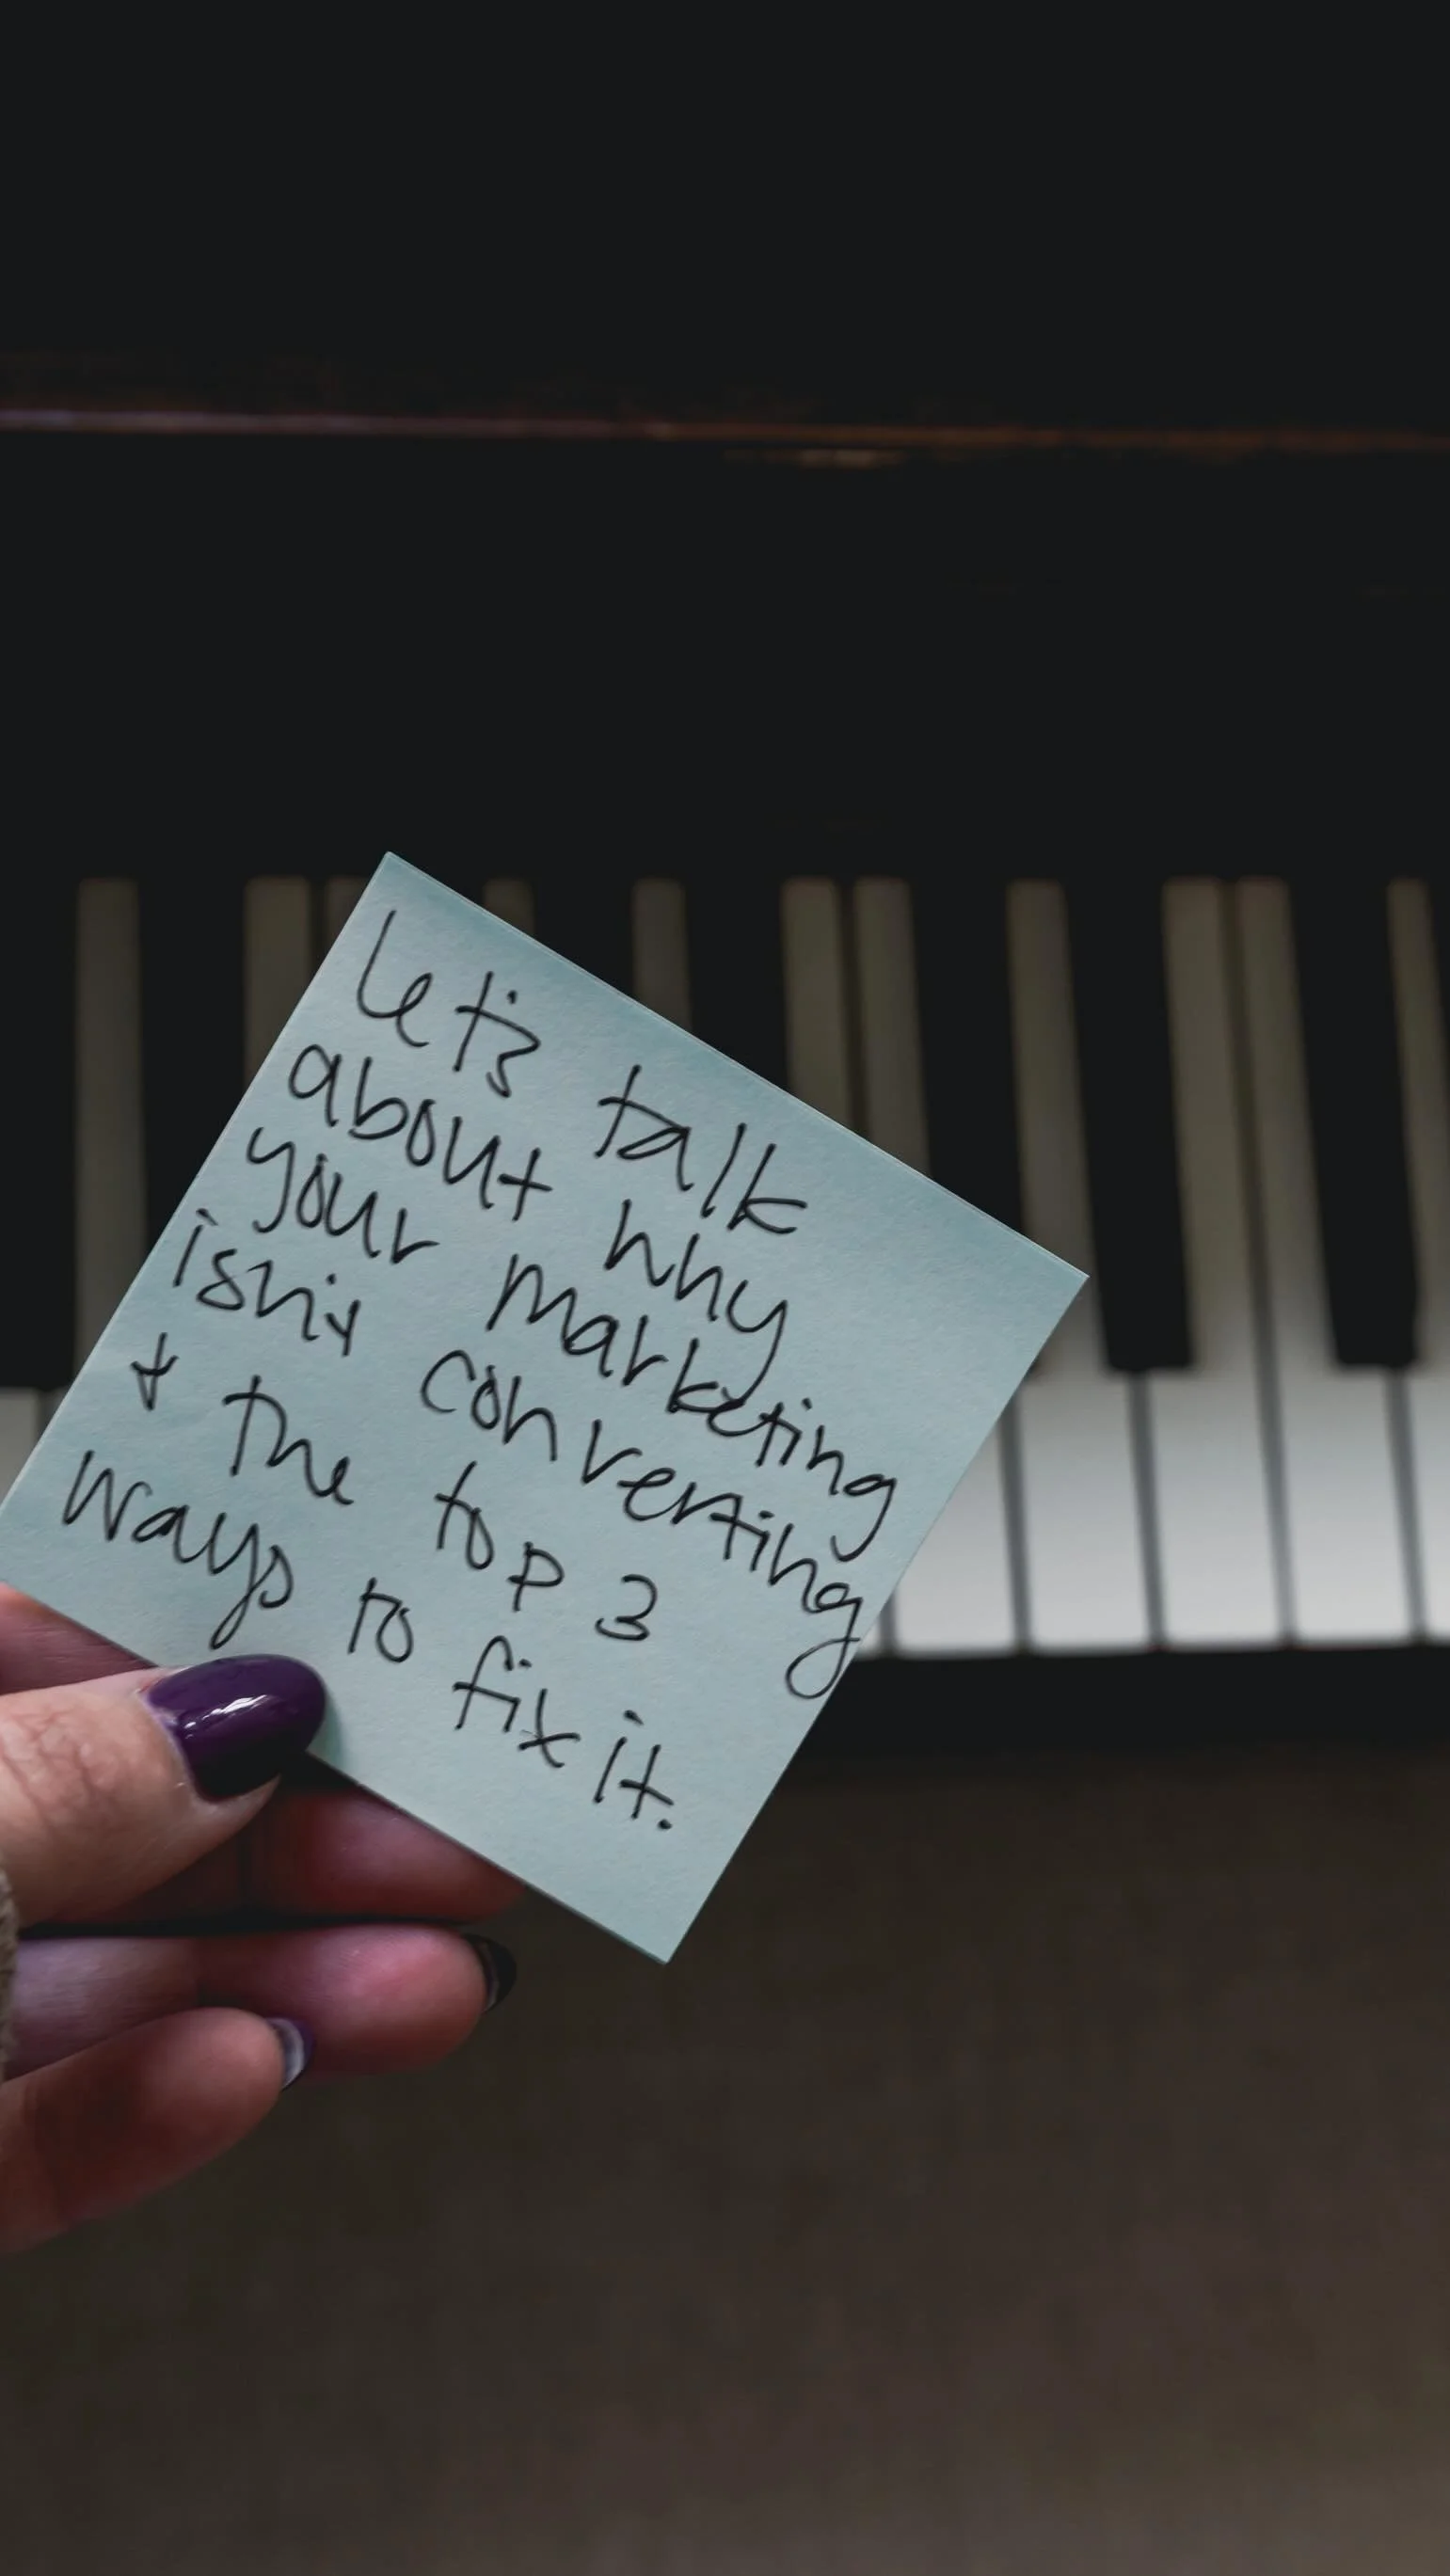 let's talk
about why
your marketing
isn't converting
+ the top 3
ways to fix it.